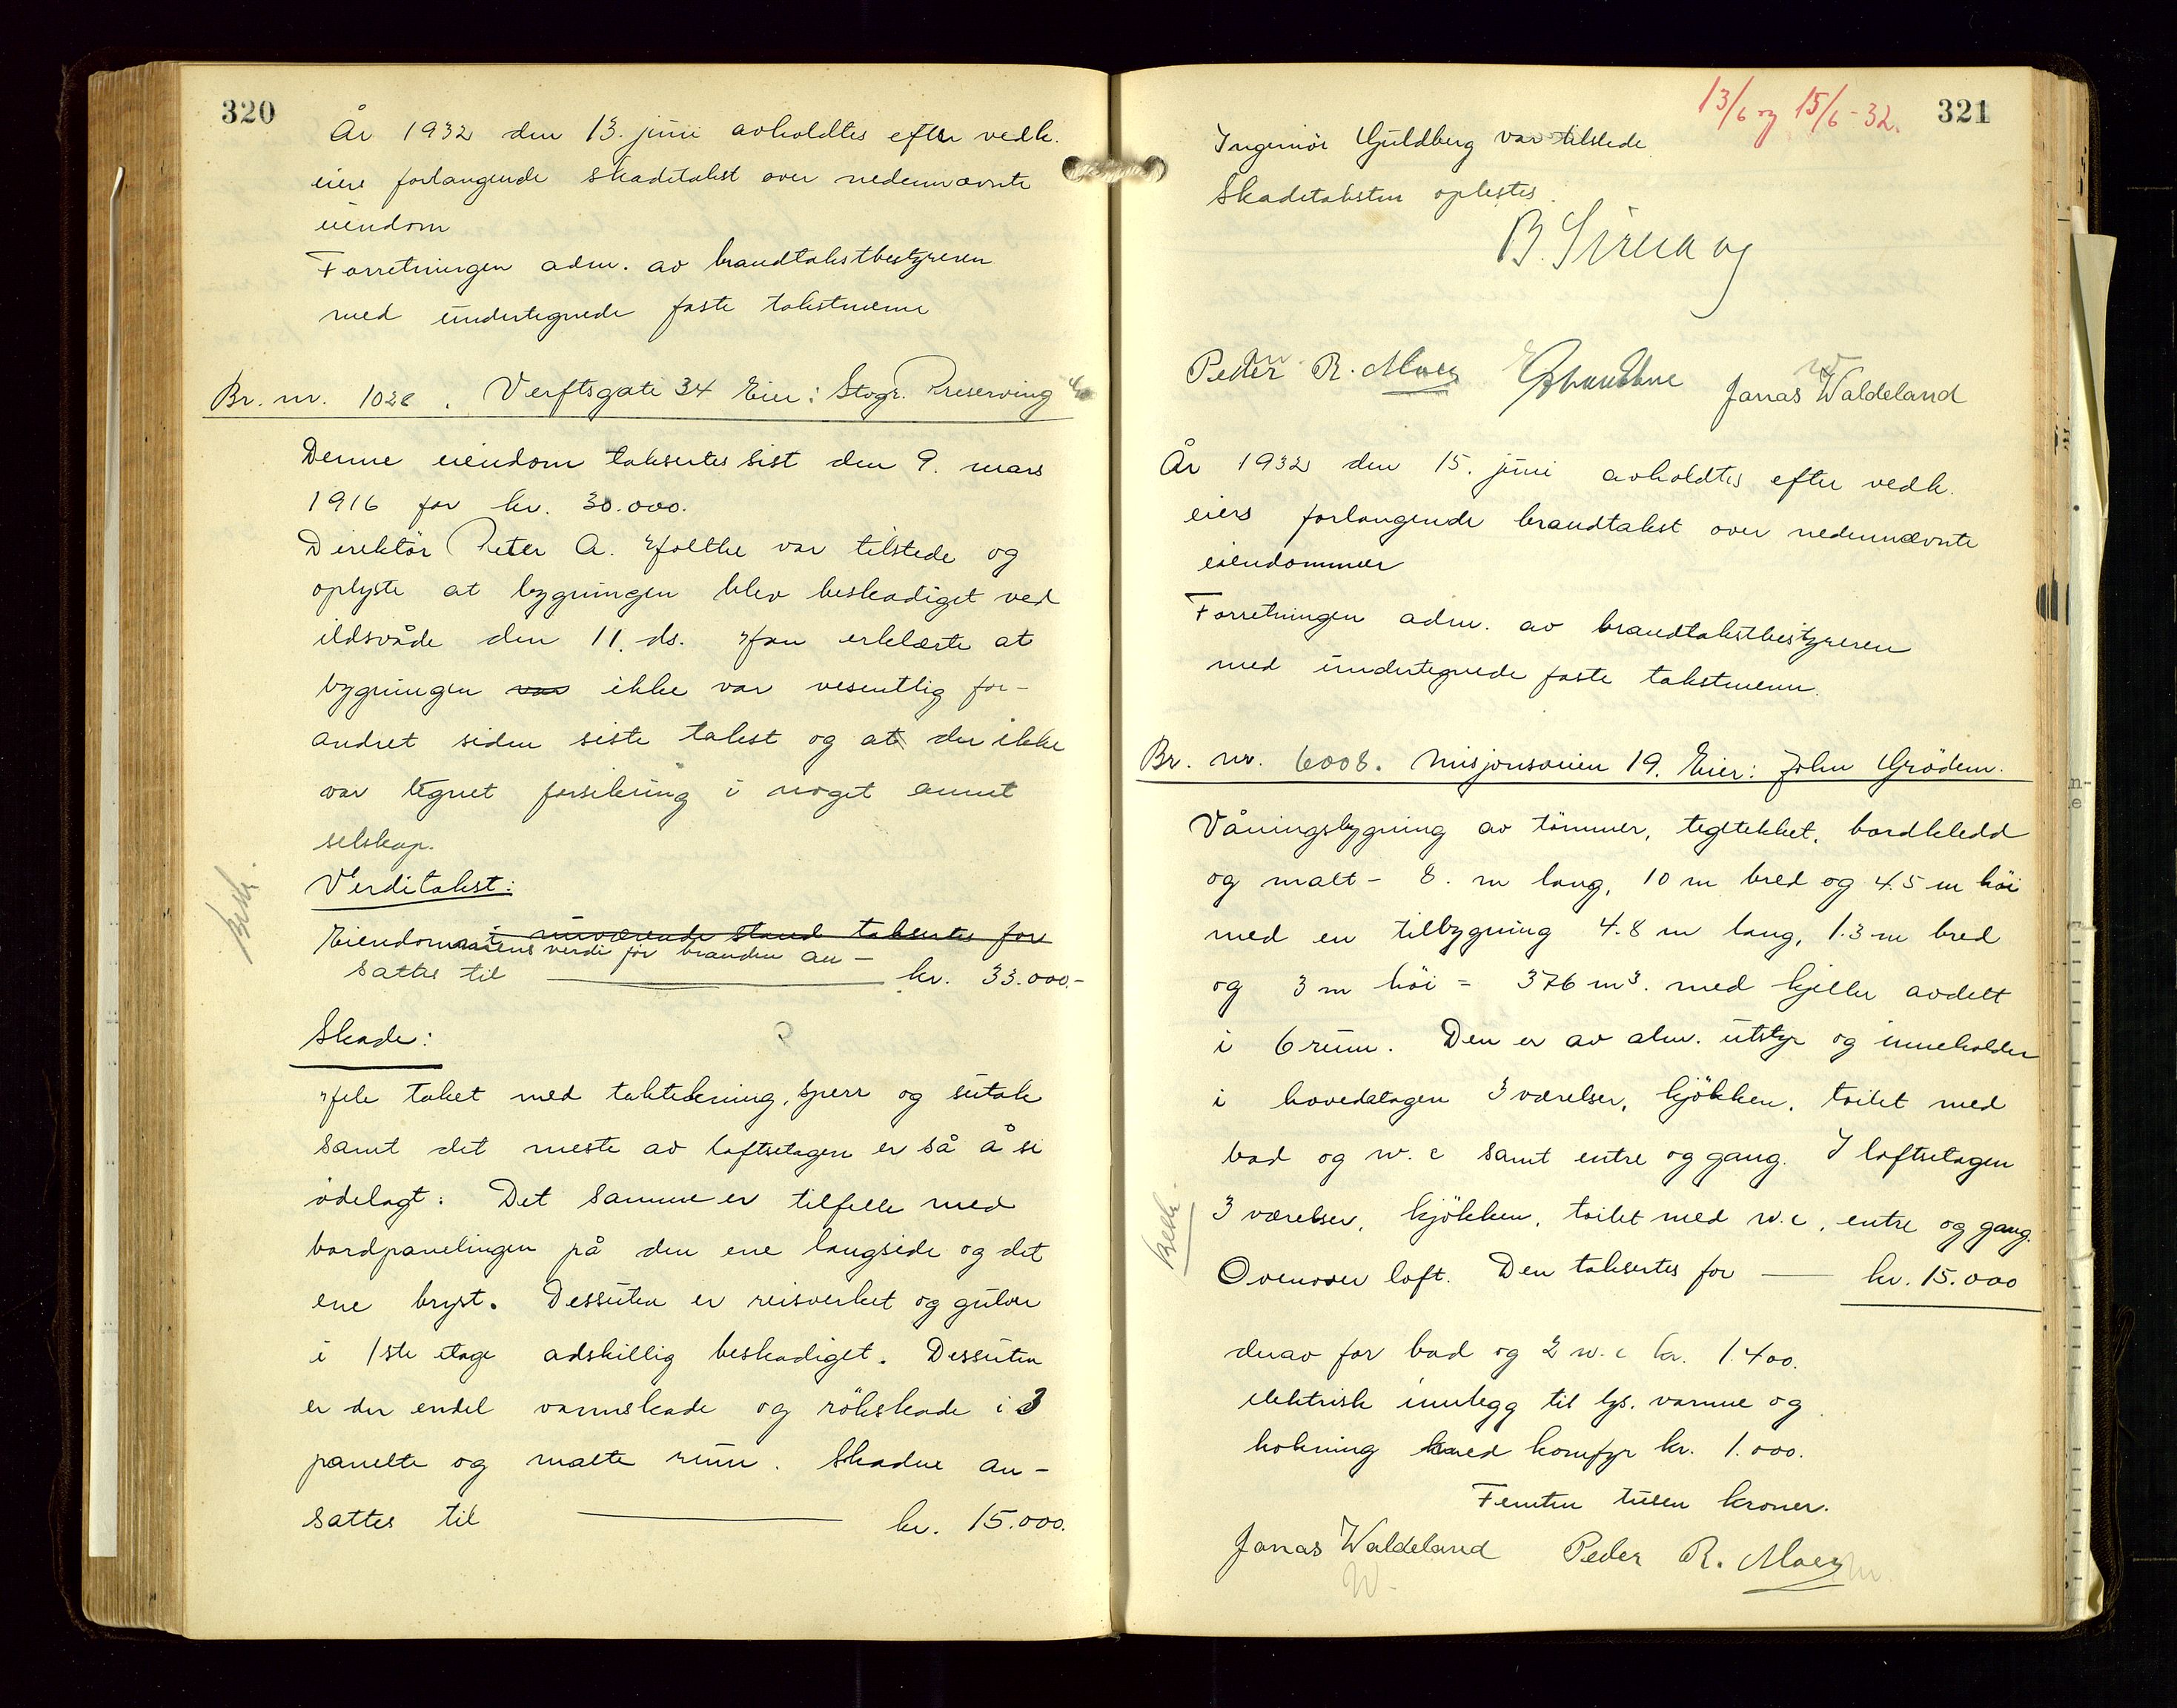 320
År 1932 den 13. juni avholdtes efter vedk.
eiers forlangende skadetakst over nedennævnte
eiendom
Forretningen adm. av brandtakstbestyreren
med undertegnede faste takstmenn
Br. nr. 1028. Verftsgate 34 Eier: Stvgr. Preserving Co
Denne eiendom taksertes sist den 9. mars
1916 for kr. 30.000.
Direktör Peter A. Holthe var tilstede og
oplyste at bygningen blev beskadiget ved
ildsvåde den 11. ds. Han erklærte at
bygningen var ikke var vesentlig for-
andret siden siste takst og at der ikke
var tegnet forsikring i noget annet
selskap.
Verditakst:
Eiendom i nuværende stand taksertes for
mens verdi för branden an-
sattes til kr. 33.000.-
Skade:
Hele taket med taktekning, sperr og sutak
samt det meste av loftsetagen er så å si
ödelagt. Det samme er tilfelle med
bordpanelingen på den ene langside og det
ene bryst. Dessuten er reisverket og gulver
i 1ste etage adskillig beskadiget. Dessuten
er der endel vannskade og rökskade i 3
panelte og malte rum. Skaden an-
sattes til kr. 15.000.
13/6 og 15/6-32.
321
Ingeniör Guldberg var tilstede
Skadetaksten oplestes.
B. Sirevaag
Peder R. Moey Jonas Waldeland
År 1932 den 15. juni avholdtes efter vedk.
eiers forlangende brandtakst over nedennævnte
eiendommer
Forretningen adm. av brandtakstbestyreren
med undertegnede faste takstmenn.
Br. nr. 6008. Misjonsveien 19. Eier: John Grödem.
Våningsbygning av tömmer, tegltekket, bordkledd
og malt - 8. m lang, 10 m bred og 4.5 m höi
med en tilbygning 4.8 m lang, 1.3 m bred
og 3 m höi = 376 m³. med kjeller avdelt
i 6 rum. Den er av alm. utstyr og inneholder
i hovedetagen 3 værelser, kjökken, toilet med
bad og w.c samt entre og gang. I loftsetagen
3 værelser, kjökken, toilet med w.c, entre og gang.
Ovenover loft. Den taksertes for kr. 15.000
derav for bad og 2 w.c kr. 1.400.
elektrisk innlegg til lys, varme og
kokning med komfyr kr. 1.000.
Femten tusen kroner.
Jonas Waldeland Peder R. Moey